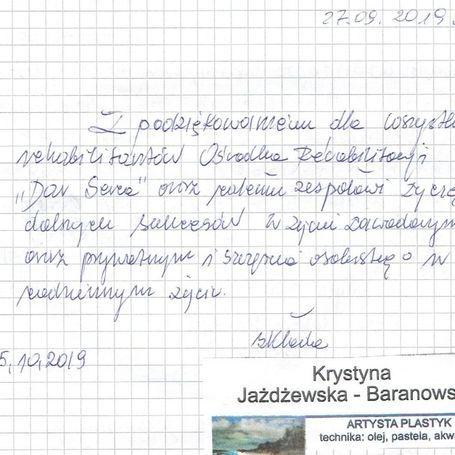 27.09.2019.
Z podziękowaniem dla wszystk
rehabilitantów Ośrodka Rehabilitacji
„Dar Serca" oraz całemu zespołowi życzę
dalszych sukcesów w życiu zawodowym
oraz prywatnym i szczęścia osobistego w
codziennym życiu.
składa
5,10,2019
Krystyna
Jażdżewska - Baranows
ARTYSTA PLASTYK
technika: olej, pastela, akw